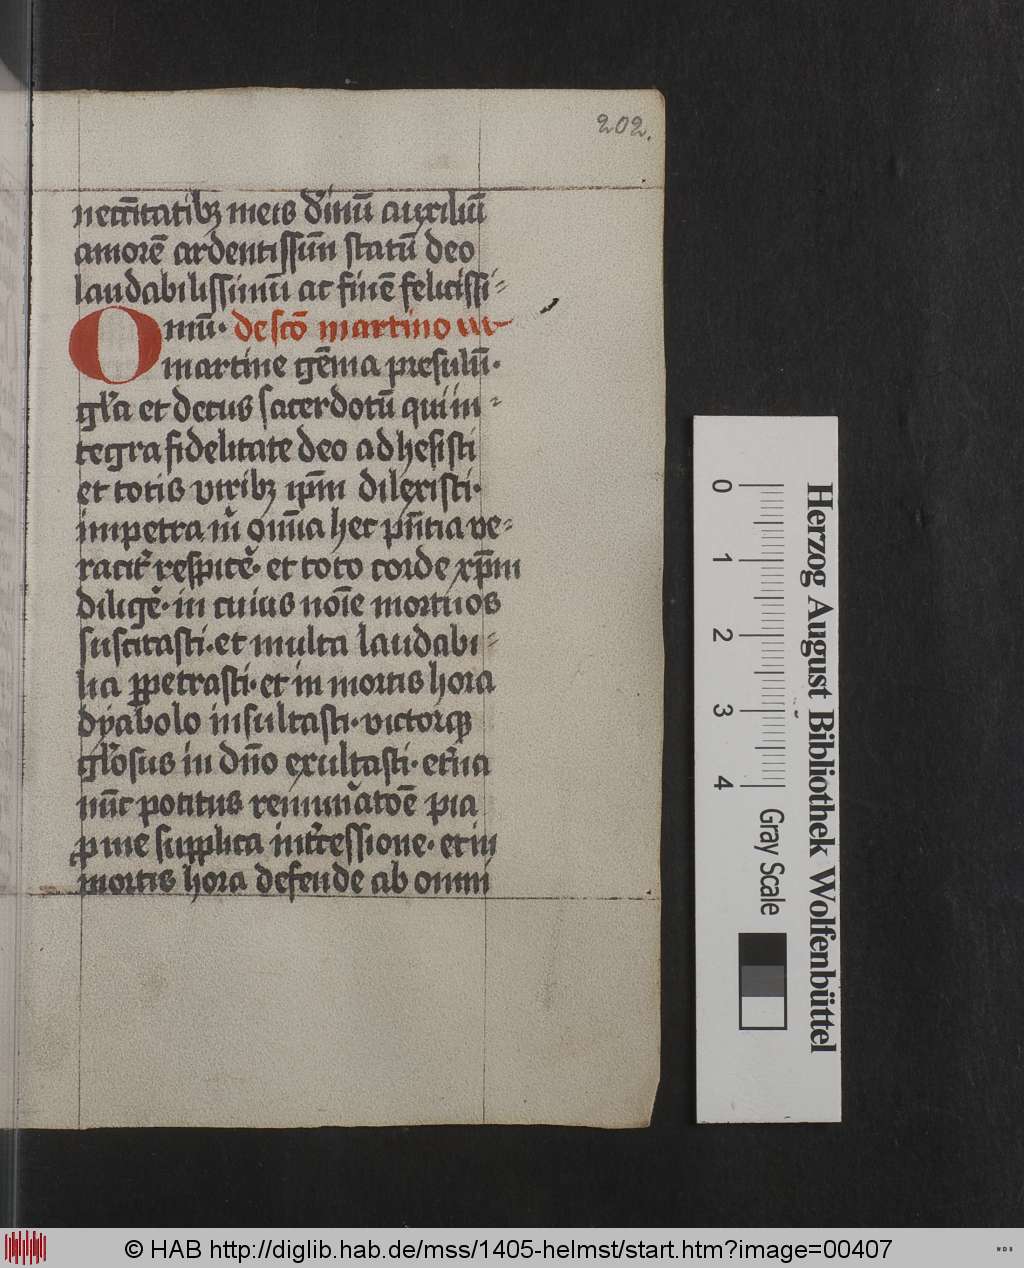 202.
neccītatibꝫ meis diuinū auxiliū
amorē ardentissīm statū deo
laudabilissimū ac finē felicissi-
mū. de scō martino
O martine gēma presulū.
glā et decus sacerdotū qui in-
tegra fidelitate deo adhesisti
et totis viribꝫ ipm̄ dilexisti.
impetra m̄ oīa hec pn̄tia ve-
racit respicē. et toto corde xp̄m
diligē. in cuius noīe mortuos
suscitasti. et multa laudabi-
lia ꝑpetrasti. et in mortis hora
dyabolo insultasti. victorqꝫ
glosus in dn̄o exultasti. etna
nūc potitus remunatōe pia
ꝓ me supplica intcessione. et in
mortis hora defende ab omni
Herzog August Bibliothek Wolfenbüttel
0 1 2 3 4
Gray Scale
© HAB http://diglib.hab.de/mss/1405-helmst/start.htm?image=00407